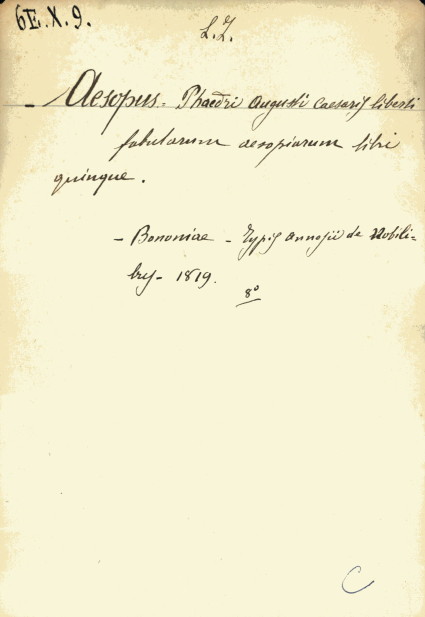 6E.X.9.
L.I.
- Aesopus. Phaedri Augusti Caesaris liberti
fabularum aesopiarum libri
quinque.
- Bononiae - Typis Annesii de Nobili-
bus - 1819.
8°
C